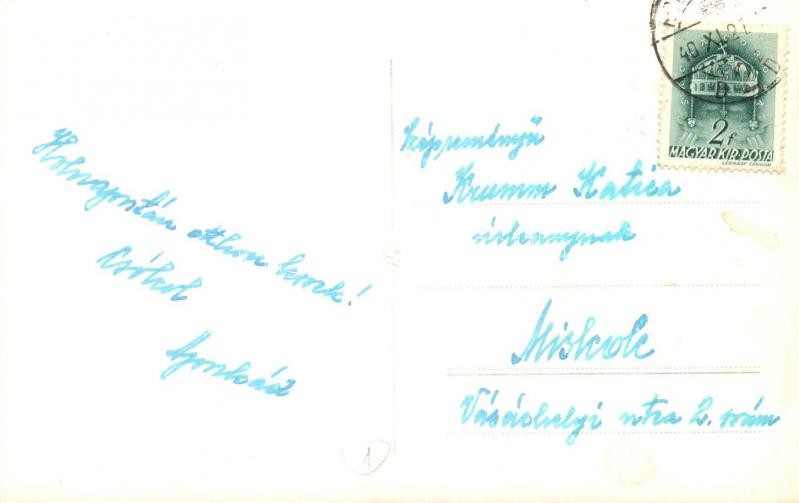 Holnapután otthon leszek!
Csókol
40 XI. 27
2f
MAGYAR KIR. POSTA
LÉGRÁDY SÁNDOR
Szépreményű
Krumm Katica
úrleánynak
Miskolc
Vásárhelyi utca 2. szám
1